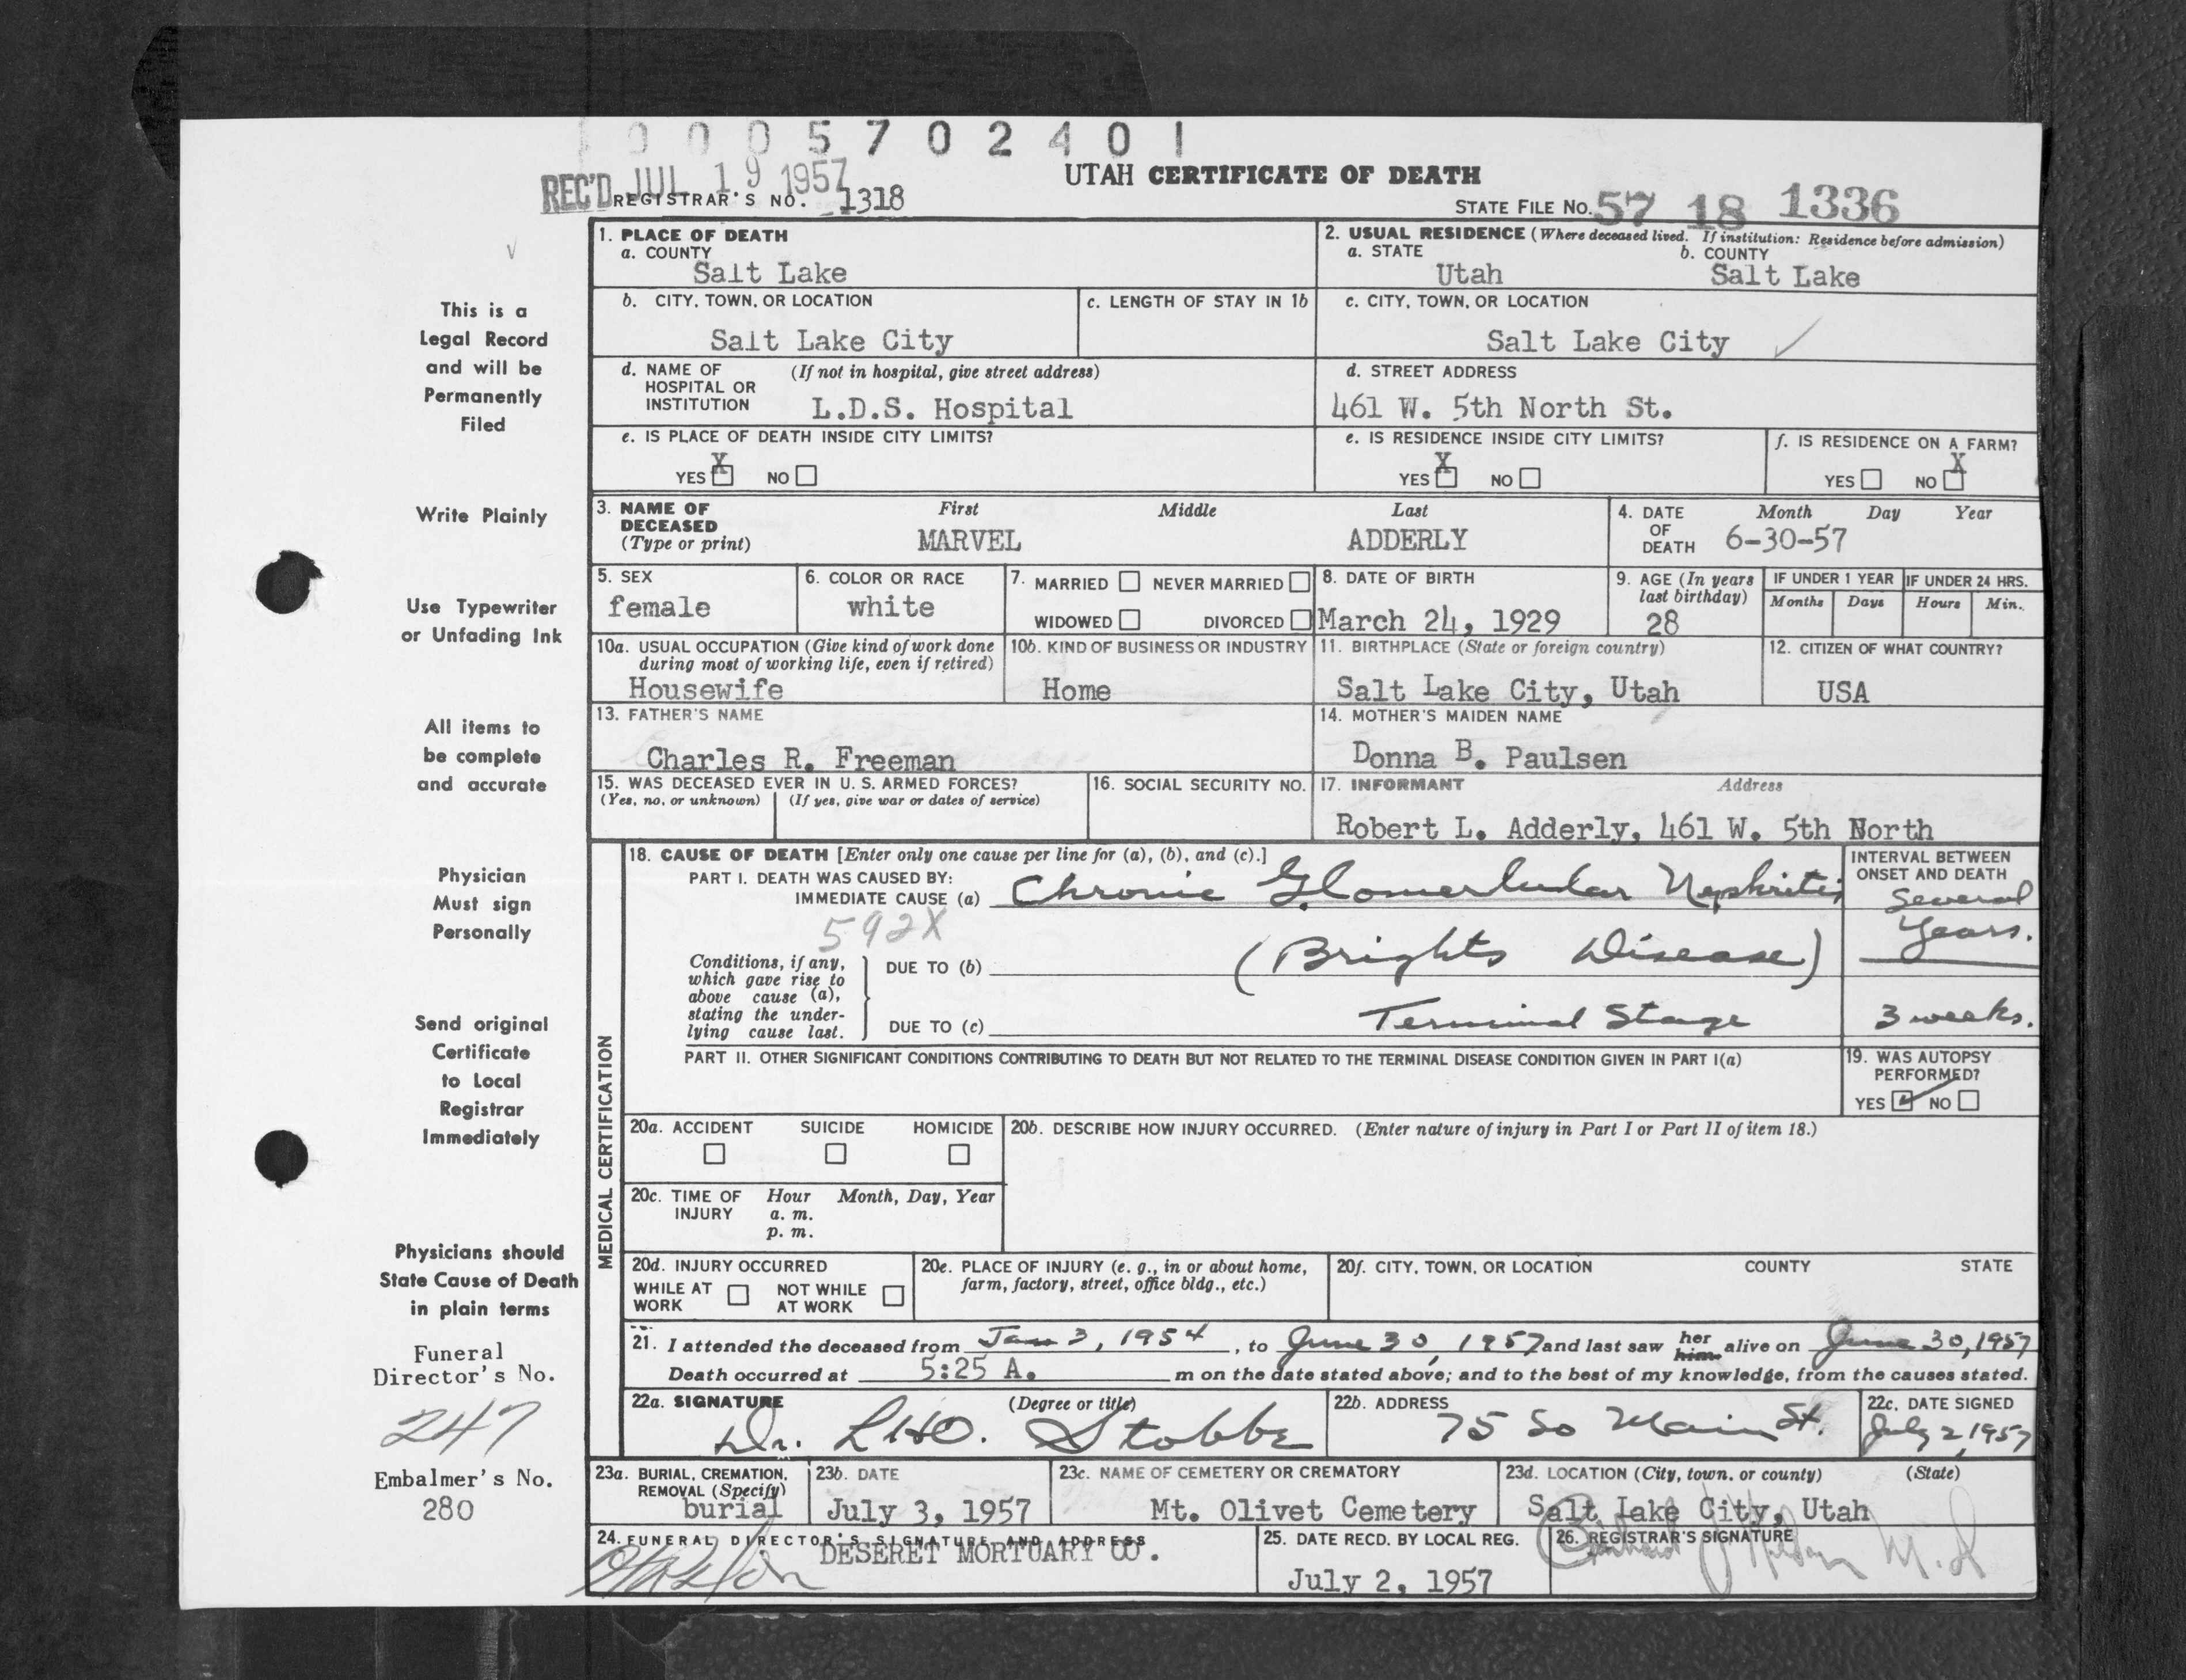 0 0 0 5 7 0 2 4 0 1
REC'D JUL 19 1957
UTAH CERTIFICATE OF DEATH
REGISTRAR'S NO. 1318
STATE FILE NO. 57 18 1336
This is a
Legal Record
and will be
Permanently
Filed
Write Plainly
Use Typewriter
or Unfading Ink
All items to
be complete
and accurate
Physician
Must sign
Personally
Send original
Certificate
to Local
Registrar
Immediately
Physicians should
State Cause of Death
in plain terms
Funeral
Director's No.
247
Embalmer's No.
280
1. PLACE OF DEATH
a. COUNTY
Salt Lake
2. USUAL RESIDENCE (Where deceased lived. If institution: Residence before admission)
a. STATE b. COUNTY
Utah Salt Lake
b. CITY, TOWN, OR LOCATION
Salt Lake City
c. LENGTH OF STAY IN 1b
c. CITY, TOWN, OR LOCATION
Salt Lake City
d. NAME OF (If not in hospital, give street address)
HOSPITAL OR
INSTITUTION L.D.S. Hospital
d. STREET ADDRESS
461 W. 5th North St.
e. IS PLACE OF DEATH INSIDE CITY LIMITS?
YES X NO
e. IS RESIDENCE INSIDE CITY LIMITS?
YES X NO
f. IS RESIDENCE ON A FARM?
YES NO X
3. NAME OF First Middle Last
DECEASED
(Type or print) MARVEL ADDERLY
4. DATE Month Day Year
OF
DEATH 6-30-57
5. SEX
female
6. COLOR OR RACE
white
7. MARRIED NEVER MARRIED
WIDOWED DIVORCED
8. DATE OF BIRTH
March 24, 1929
9. AGE (In years
last birthday)
28
IF UNDER 1 YEAR IF UNDER 24 HRS.
Months Days Hours Min.
10a. USUAL OCCUPATION (Give kind of work done
during most of working life, even if retired)
Housewife
10b. KIND OF BUSINESS OR INDUSTRY
Home
11. BIRTHPLACE (State or foreign country)
Salt Lake City, Utah
12. CITIZEN OF WHAT COUNTRY?
USA
13. FATHER'S NAME
Charles R. Freeman
14. MOTHER'S MAIDEN NAME
Donna B. Paulsen
15. WAS DECEASED EVER IN U. S. ARMED FORCES?
(Yes, no, or unknown) (If yes, give war or dates of service)
16. SOCIAL SECURITY NO.
17. INFORMANT Address
Robert L. Adderly, 461 W. 5th North
MEDICAL CERTIFICATION
18. CAUSE OF DEATH [Enter only one cause per line for (a), (b), and (c).]
PART I. DEATH WAS CAUSED BY:
IMMEDIATE CAUSE (a) Chronic Glomerlular Nephritis
592X
Conditions, if any,
which gave rise to
above cause (a),
stating the under-
lying cause last.
DUE TO (b) (Brights Disease)
DUE TO (c) Terminal Stage
INTERVAL BETWEEN
ONSET AND DEATH
Several
Years.
3 weeks.
PART II. OTHER SIGNIFICANT CONDITIONS CONTRIBUTING TO DEATH BUT NOT RELATED TO THE TERMINAL DISEASE CONDITION GIVEN IN PART I(a)
19. WAS AUTOPSY
PERFORMED?
YES NO
20a. ACCIDENT SUICIDE HOMICIDE
20b. DESCRIBE HOW INJURY OCCURRED. (Enter nature of injury in Part I or Part II of item 18.)
20c. TIME OF Hour Month, Day, Year
INJURY a. m.
p. m.
20d. INJURY OCCURRED
WHILE AT NOT WHILE
WORK AT WORK
20e. PLACE OF INJURY (e. g., in or about home,
farm, factory, street, office bldg., etc.)
20f. CITY, TOWN, OR LOCATION COUNTY STATE
21. I attended the deceased from Jan 3, 1954, to June 30, 1957 and last saw her him alive on June 30, 1957
Death occurred at 5:25 A. m on the date stated above; and to the best of my knowledge, from the causes stated.
22a. SIGNATURE (Degree or title)
Dr. L.H.O. Stobbe
22b. ADDRESS
75 So Main St.
22c. DATE SIGNED
July 2, 1957
23a. BURIAL, CREMATION,
REMOVAL (Specify)
burial
23b. DATE
July 3, 1957
23c. NAME OF CEMETERY OR CREMATORY
Mt. Olivet Cemetery
23d. LOCATION (City, town, or county) (State)
Salt Lake City, Utah
24. FUNERAL DIRECTOR'S SIGNATURE AND ADDRESS
DESERET MORTUARY CO.
25. DATE RECD. BY LOCAL REG.
July 2, 1957
26. REGISTRAR'S SIGNATURE
M.D